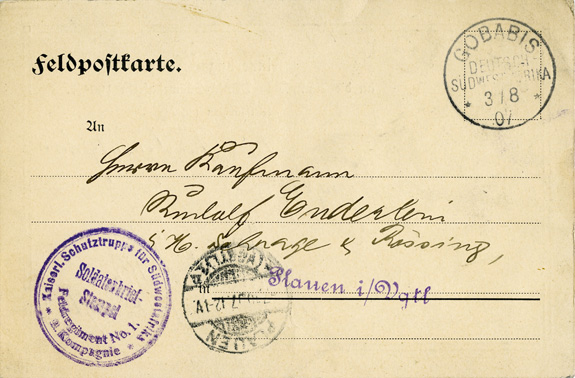 Feldpostkarte.
GOBABIS
DEUTSCH-
SÜDWESTAFRIKA
* 3/8 *
07
An
Herrn Kaufmann
Rudolf Enderlein
Plauen i/Vgtl
Kaiserl. Schutztruppe für Südwestafrika
Soldatenbrief-
Stempel
Feldregiment No. 1.
Kompagnie
PLAUEN